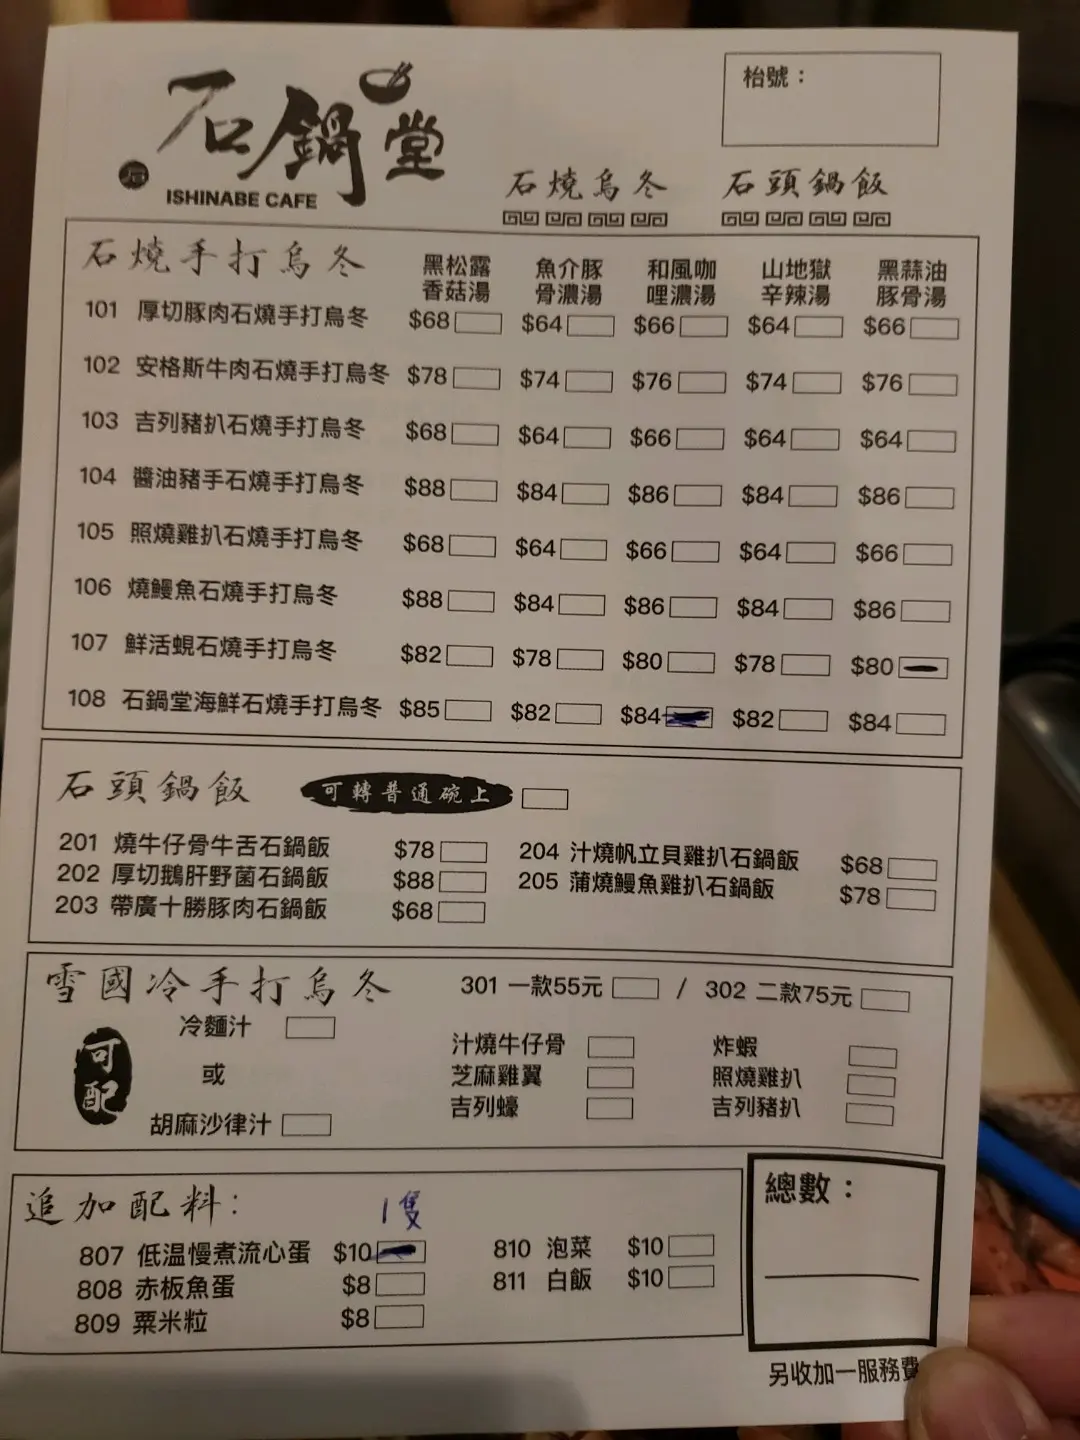 石鍋堂
ISHINABE CAFE
枱號：
石燒烏冬 石頭鍋飯
石燒手打烏冬 黑松露香菇湯 魚介豚骨濃湯 和風咖哩濃湯 山地獄辛辣湯 黑蒜油豚骨湯
101 厚切豚肉石燒手打烏冬 $68 $64 $66 $64 $66
102 安格斯牛肉石燒手打烏冬 $78 $74 $76 $74 $76
103 吉列豬扒石燒手打烏冬 $68 $64 $66 $64 $64
104 醬油豬手石燒手打烏冬 $88 $84 $86 $84 $86
105 照燒雞扒石燒手打烏冬 $68 $64 $66 $64 $66
106 燒鰻魚石燒手打烏冬 $88 $84 $86 $84 $86
107 鮮活蜆石燒手打烏冬 $82 $78 $80 $78 $80
108 石鍋堂海鮮石燒手打烏冬 $85 $82 $84 $82 $84
石頭鍋飯 可轉普通碗上
201 燒牛仔骨牛舌石鍋飯 $78 204 汁燒帆立貝雞扒石鍋飯 $68
202 厚切鵝肝野菌石鍋飯 $88 205 蒲燒鰻魚雞扒石鍋飯 $78
203 帶廣十勝豚肉石鍋飯 $68
雪國冷手打烏冬 301 一款55元 / 302 二款75元
可配
冷麵汁
或
胡麻沙律汁
汁燒牛仔骨 炸蝦
芝麻雞翼 照燒雞扒
吉列蠔 吉列豬扒
追加配料： 1隻
807 低温慢煮流心蛋 $10 810 泡菜 $10
808 赤板魚蛋 $8 811 白飯 $10
809 粟米粒 $8
總數：
另收加一服務費